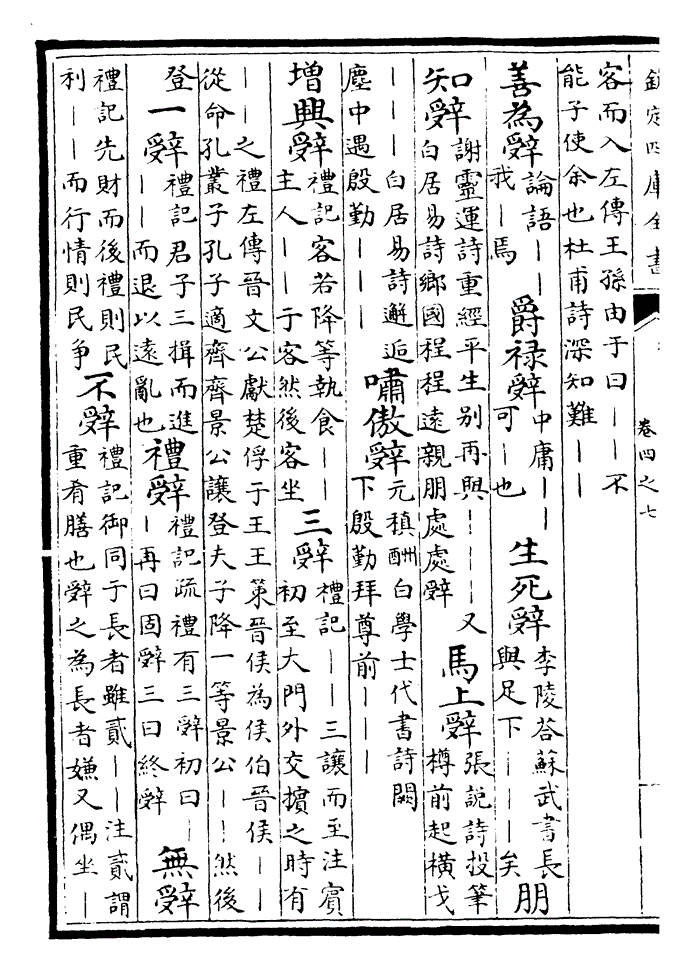 欽定四庫全書
卷四之七
客而入左傳王孫由于曰丨丨不
能子使余也杜甫詩深知難丨丨
善為辭
論語丨丨
我丨焉
爵禄辭
中庸丨丨
可丨也
生死辭
李陵答蘇武書長
與足下丨丨丨矣
朋
知辭
謝靈運詩重經平生别再與丨丨丨又
白居易詩鄉國程程遠親朋處處辭
馬上辭
張說詩投筆
樽前起横戈
丨丨丨白居易詩邂逅
塵中遇殷勤丨丨丨
嘯傲辭
元稹酬白學士代書詩闕
下殷勤拜尊前丨丨丨
增興辭
禮記客若降等執食丨丨
主人丨丨于客然後客坐
三辭
禮記丨丨三讓而至注賓
初至大門外交擯之時有
丨丨之禮左傳晉文公獻楚俘于王王策晉侯為侯伯晉侯丨丨
從命孔叢子孔子適齊齊景公讓登夫子降一等景公丨丨然後
登
一辭
禮記君子三揖而進
丨丨而退以遠亂也
禮辭
禮記疏禮有三辭初曰丨
丨再曰固辭三曰終辭
無辭
禮記先財而後禮則民
利丨丨而行情則民争
不辭
禮記御同于長者雖貳丨丨注貳謂
重肴膳也辭之為長者嫌又偶坐丨